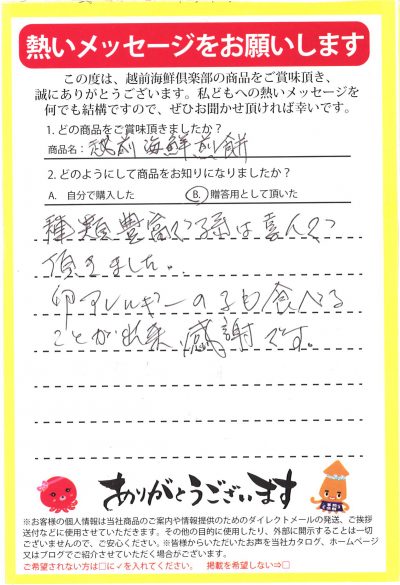 熱いメッセージをお願いします
この度は、越前海鮮倶楽部の商品をご賞味頂き、
誠にありがとうございます。私どもへの熱いメッセージを
何でも結構ですので、ぜひお聞かせ頂ければ幸いです。
1. どの商品をご賞味頂きましたか？
商品名： 越前海鮮煎餅
2. どのようにして商品をお知りになりましたか？
A. 自分で購入した B. 贈答用として頂いた
種類豊富で孫は喜んで
頂きました。
卵アレルギーの子も食べる
ことが出来、感謝です。
ありがとうございます
※お客様の個人情報は当社商品のご案内や情報提供のためのダイレクトメールの発送、ご挨拶
送付などに使用させていただきます。その他の目的に使用したり、外部に開示することは一切
ございませんので、ご安心ください。※皆様からいただいたお声を当社カタログ、ホームページ
又はブログでご紹介させていただく場合がございます。
ご希望されない方は□に✓を入れてください。 掲載を希望しない⇒□